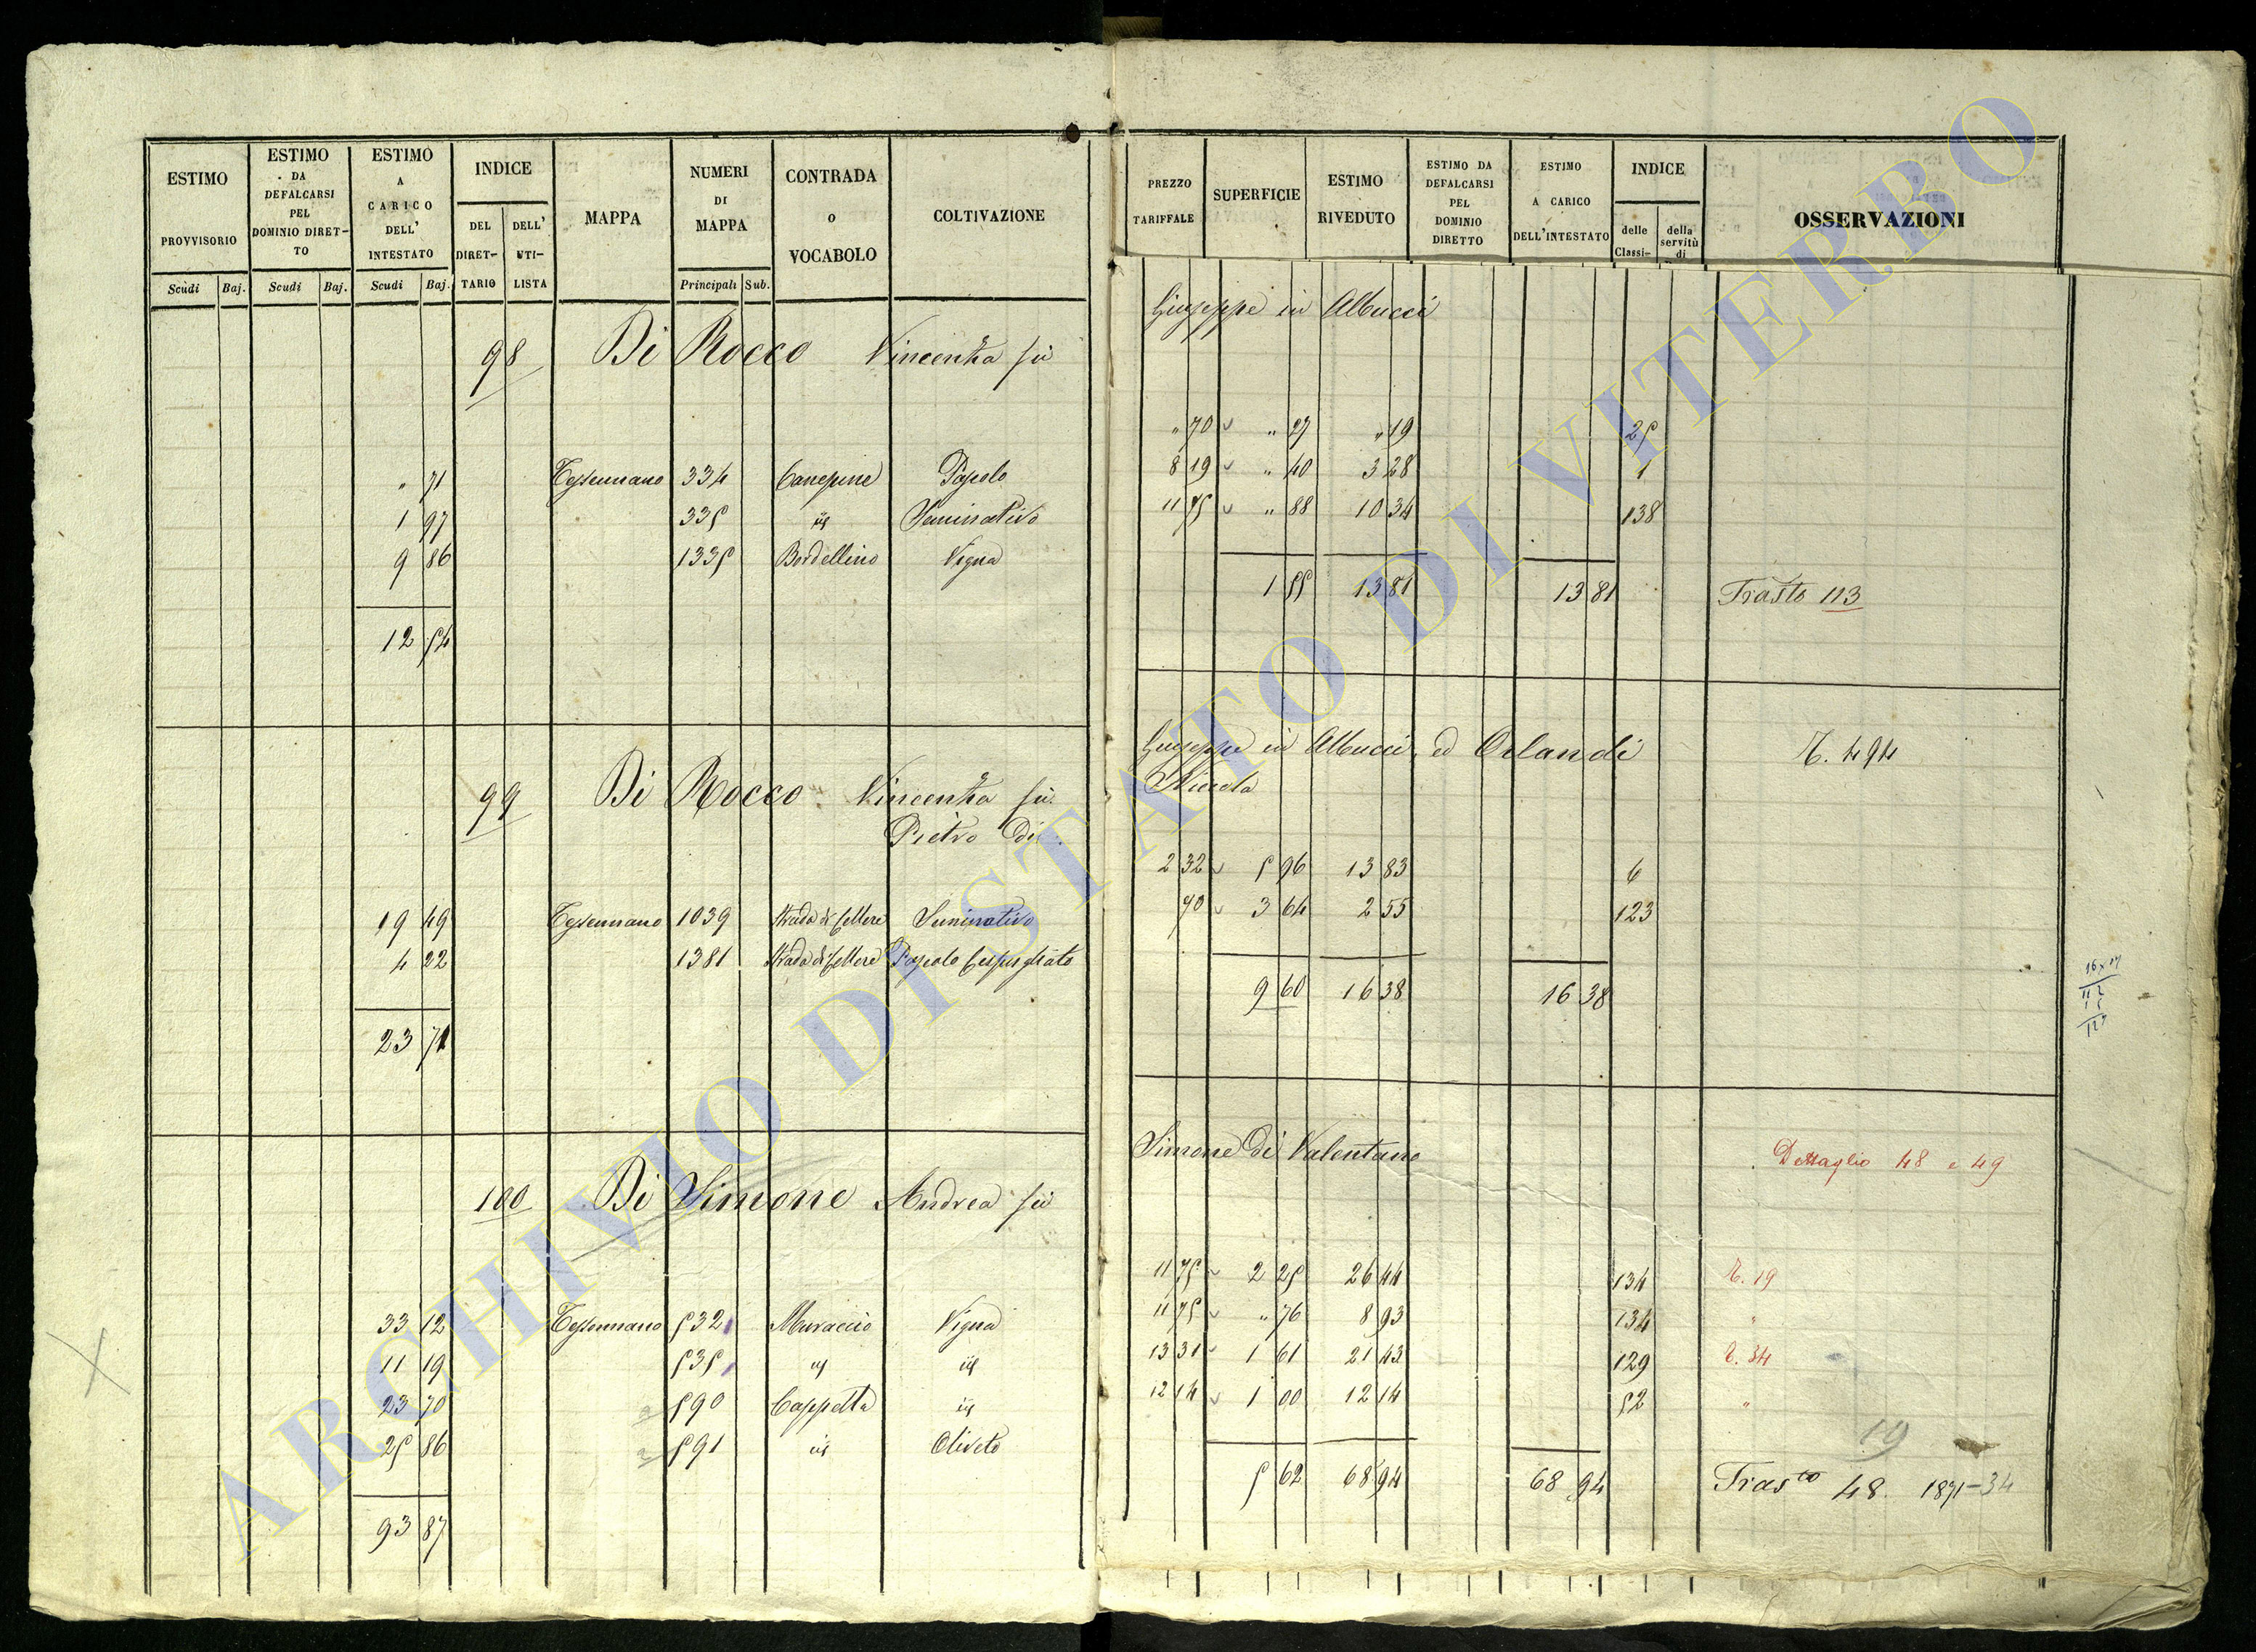 ESTIMO PROVVISORIO
ESTIMO DA DEFALCARSI PEL DOMINIO DIRETTO
ESTIMO A CARICO DELL' INTESTATO
INDICE
DEL DIRETTARIO
DELL' UTILISTA
MAPPA
NUMERI DI MAPPA
CONTRADA O VOCABOLO
COLTIVAZIONE
Scudi Baj. Scudi Baj. Scudi Baj. Principali Sub.
PREZZO TARIFFALE
SUPERFICIE
ESTIMO RIVEDUTO
ESTIMO DA DEFALCARSI PEL DOMINIO DIRETTO
ESTIMO A CARICO DELL'INTESTATO
INDICE
delle Classi-
della servitù di
OSSERVAZIONI
98 Di Rocco Vincenza fu Giuseppe in Albucci
" 71 Tessennano 334 Canepine Pascolo " 70 " 27 " 19 25
1 97 335 iis Seminativo 8 19 " 40 3 28 1
9 86 1335 Bordellino Vigna 11 75 " 88 10 34 138
12 54 1 55 13 81 13 81 Trasto 113
99 Di Rocco Vincenza fu Giuseppe in Albucci, ed Orlandi T. 494
Pietro di Nicola
19 49 Tessennano 1039 Strada di Cellere Seminativo 2 32 5 96 13 83 6
4 22 1381 Strada di Cellere Pascolo Cespugliato 70 3 64 2 55 123
23 71 9 60 16 38 16 38
100 Di Simone Andrea fu Simone di Valentano Dettaglio 48 e 49
33 12 Tessennano 532 Muraccio Vigna 11 75 2 25 26 44 134 T. 19
11 19 535 iis iis 11 75 " 76 8 93 134 "
23 70 590 Cappetta iis 13 31 1 61 21 43 129 T. 34
25 86 591 iis Oliveto 12 14 1 00 12 14 52 "
19
93 87 5 62 68 94 68 94 Trasto 48. 1871-34
ARCHIVIO DI STATO DI VITERBO